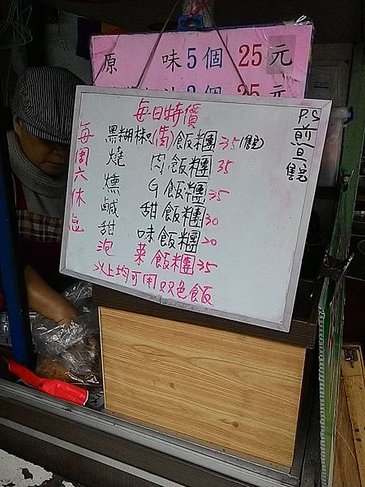 原 味 5 個 25 元
每日特價
黑糊椒(肉)飯糰35(售完)
燒 肉飯糰35
燻 G飯糰35
鹹 甜飯糰30
甜 味飯糰20
泡 菜飯糰35
以上均可用双色飯
每周六休息
P.S 煎旦售完